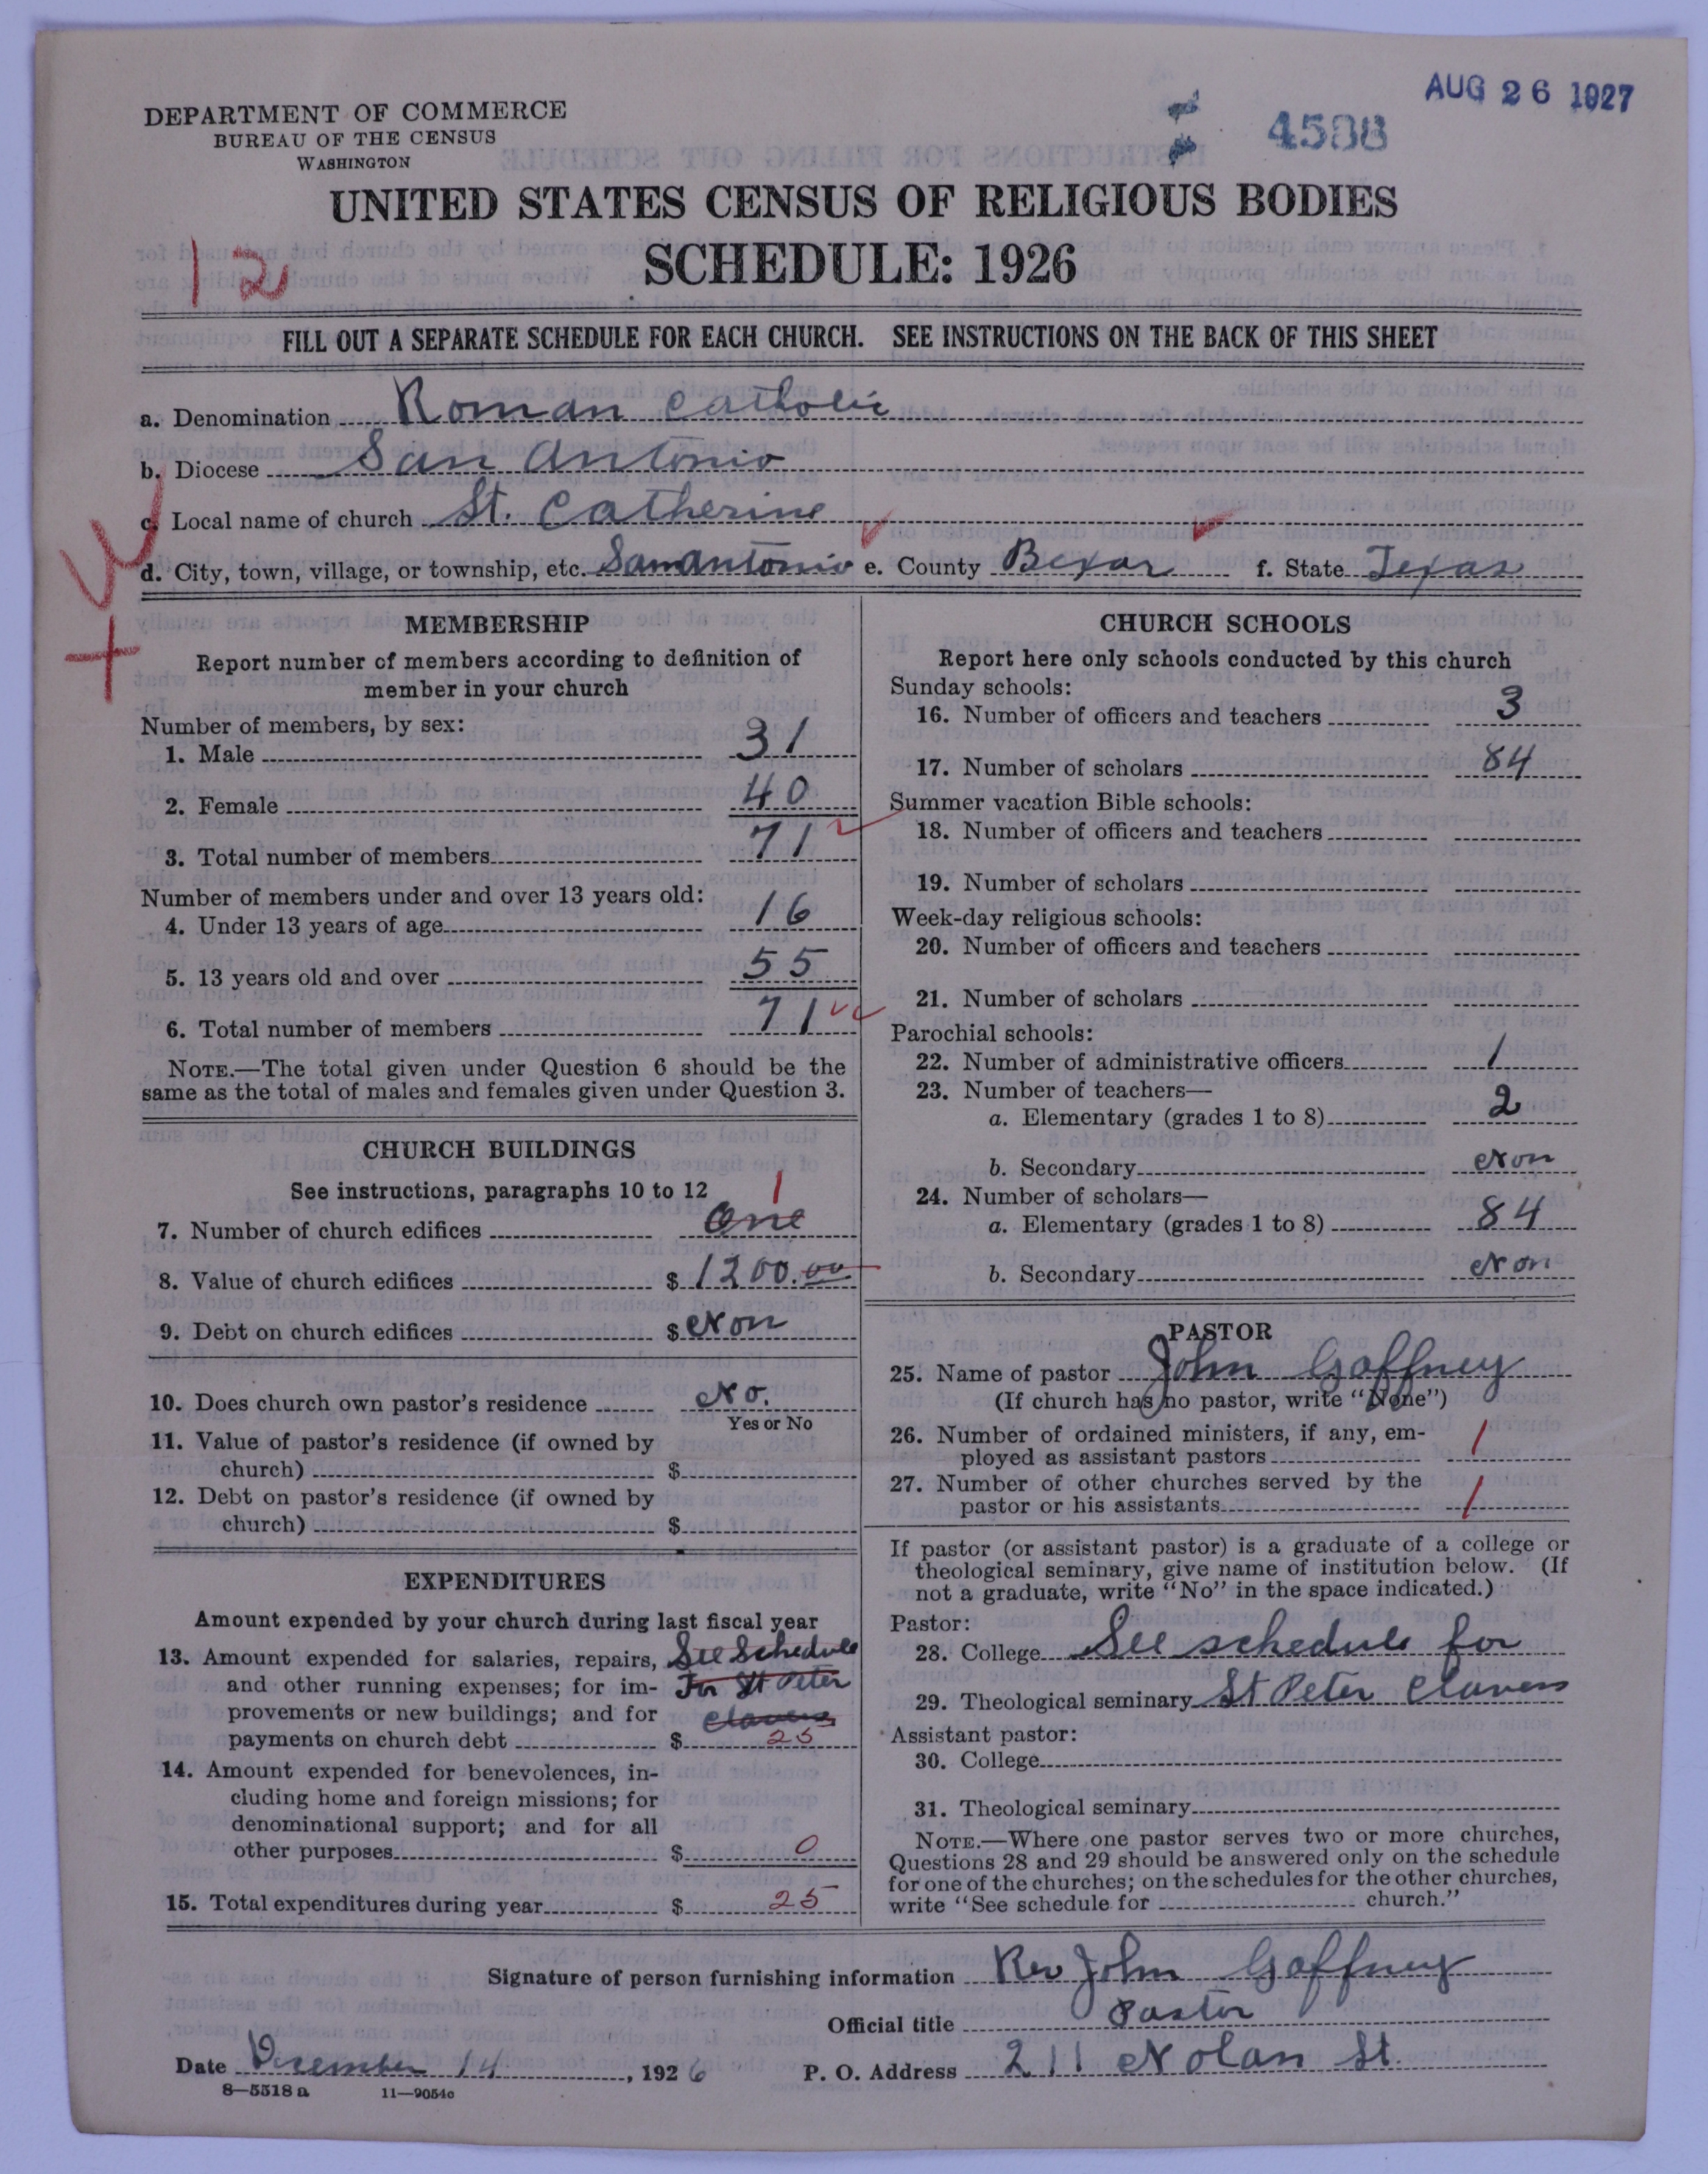 AUG 26 1927
4588
DEPARTMENT OF COMMERCE
BUREAU OF THE CENSUS
WASHINGTON
UNITED STATES CENSUS OF RELIGIOUS BODIES
SCHEDULE: 1926
12
FILL OUT A SEPARATE SCHEDULE FOR EACH CHURCH. SEE INSTRUCTIONS ON THE BACK OF THIS SHEET
a. Denomination Roman Catholic
b. Diocese San Antonio
c. Local name of church St. Catherine
d. City, town, village, or township, etc. San Antonio e. County Bexar f. State Texas
MEMBERSHIP
Report number of members according to definition of
member in your church
Number of members, by sex:
1. Male 31
2. Female 40
3. Total number of members 71
Number of members under and over 13 years old:
4. Under 13 years of age 16
5. 13 years old and over 55
6. Total number of members 71
NOTE.—The total given under Question 6 should be the
same as the total of males and females given under Question 3.
CHURCH BUILDINGS
See instructions, paragraphs 10 to 12 1
7. Number of church edifices One
8. Value of church edifices $ 1200.00
9. Debt on church edifices $ Non
10. Does church own pastor's residence No.
Yes or No
11. Value of pastor's residence (if owned by
church) $
12. Debt on pastor's residence (if owned by
church) $
EXPENDITURES
Amount expended by your church during last fiscal year
13. Amount expended for salaries, repairs, See Schedule
and other running expenses; for im- For St Peter
provements or new buildings; and for Clavers
payments on church debt $ 25
14. Amount expended for benevolences, in-
cluding home and foreign missions; for
denominational support; and for all
other purposes $ 0
15. Total expenditures during year $ 25
CHURCH SCHOOLS
Report here only schools conducted by this church
Sunday schools:
16. Number of officers and teachers 3
17. Number of scholars 84
Summer vacation Bible schools:
18. Number of officers and teachers
19. Number of scholars
Week-day religious schools:
20. Number of officers and teachers
21. Number of scholars
Parochial schools:
22. Number of administrative officers 1
23. Number of teachers—
a. Elementary (grades 1 to 8) 2
b. Secondary Non
24. Number of scholars—
a. Elementary (grades 1 to 8) 84
b. Secondary Non
PASTOR
25. Name of pastor John Gaffney
(If church has no pastor, write "None")
26. Number of ordained ministers, if any, em-
ployed as assistant pastors 1
27. Number of other churches served by the
pastor or his assistants 1
If pastor (or assistant pastor) is a graduate of a college or
theological seminary, give name of institution below. (If
not a graduate, write "No" in the space indicated.)
Pastor:
28. College See schedule for
29. Theological seminary St Peter Clavers
Assistant pastor:
30. College
31. Theological seminary
NOTE.—Where one pastor serves two or more churches,
Questions 28 and 29 should be answered only on the schedule
for one of the churches; on the schedules for the other churches,
write "See schedule for church."
Signature of person furnishing information Rev John Gaffney
Official title Pastor
Date December 14, 1926 P. O. Address 211 Nolan St.
8—5518 a 11—9054c